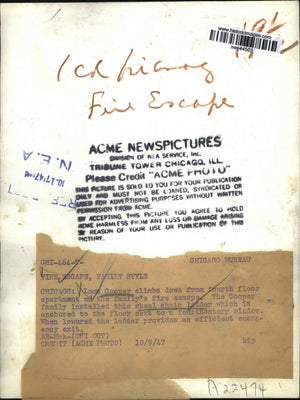 www.historicimages.com
Fire Escape
ACME NEWSPICTURES
DIVISION OF NEA SERVICE, Inc.
TRIBUNE TOWER CHICAGO, ILL.
Please Credit "ACME PHOTO"
THIS PICTURE IS SOLD TO YOU FOR YOUR PUBLICATION
ONLY AND MUST NOT BE LOANED, SYNDICATED OR
USED FOR ADVERTISING PURPOSES WITHOUT WRITTEN
PERMISSION FROM ACME.
BY ACCEPTING THIS PICTURE YOU AGREE TO HOLD
ACME HARMLESS FROM ANY LOSS OR DAMAGE ARISING
BY REASON OF YOUR USE OR PUBLICATION OF THIS
PICTURE.
N. E. A
CHI-464-T- CHICAGO BUREAU
FIRE ESCAPE, FAMILY STYLE
CHICAGO: Cooper climbs down from fourth floor
apartment on the family's fire escape. The Cooper
family installed this steel chain ladder which is
anchored to the floor next to a fourth story window.
When lowered the ladder provides an efficient emerg-
ency exit.
(CHI OUT)
CREDIT (ACME PHOTO) 10/9/47
A22474